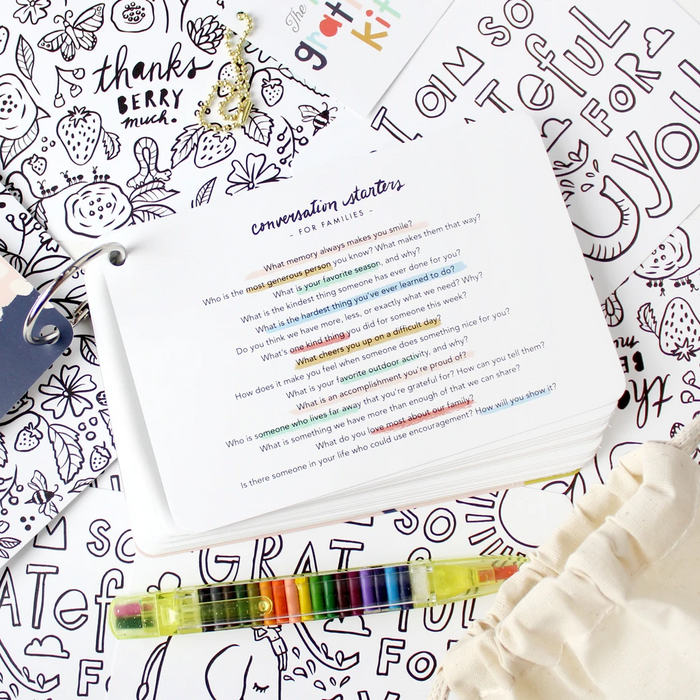 The
grat
kit
thanks
BERRY
much.
I AM SO
ATEFUL
FOR
YOU
conversation starters
- FOR FAMILIES -
What memory always makes you smile?
Who is the most generous person you know? What makes them that way?
What is your favorite season, and why?
What is the kindest thing someone has ever done for you?
What is the hardest thing you've ever learned to do?
Do you think we have more, less, or exactly what we need? Why?
What's one kind thing you did for someone this week?
What cheers you up on a difficult day?
How does it make you feel when someone does something nice for you?
What is your favorite outdoor activity, and why?
What is an accomplishment you're proud of?
Who is someone who lives far away that you're grateful for? How can you tell them?
What is something we have more than enough of that we can share?
What do you love most about our family?
Is there someone in your life who could use encouragement? How will you show it?
th
BE
m
SO
ATEF
FO
GRAT
SO
FOR